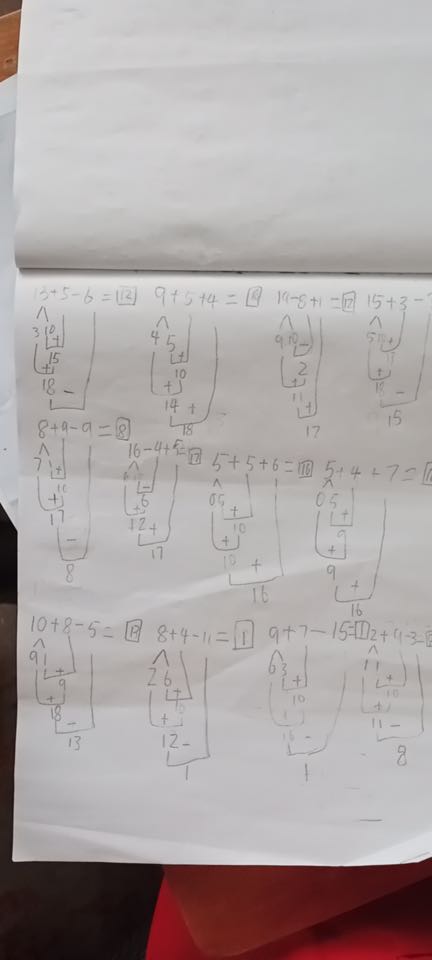 13+5-6=12 9+5+4=18 19-8+1=12 15+3-
3 10 4 5 9 10 5 10
15 10 2
18 14 11 18
18 17 15
8+9-9=8 16-4+5=17 5+5+6=16 5+4+7=
7 1 0 5 0 5
10 6 10 9
17 12 10 9
8 17 16 16
10+8-5= 8+4-11=1 9+7-15=1 2+9-3=
9 1 2 6 6 3 1 1
9 10 10 10
18 12 16 11
13 1 1 8